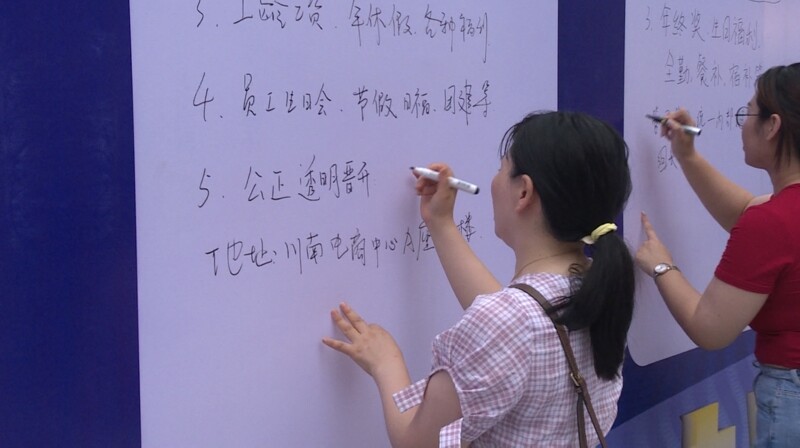 3. 工龄工资、年休假、各种福利
4. 员工生日会、节假日福、团建等
5. 公正透明晋升
地址: 川南电商中心A座 楼
3. 年终奖 生日福利
全勤、餐补、宿补